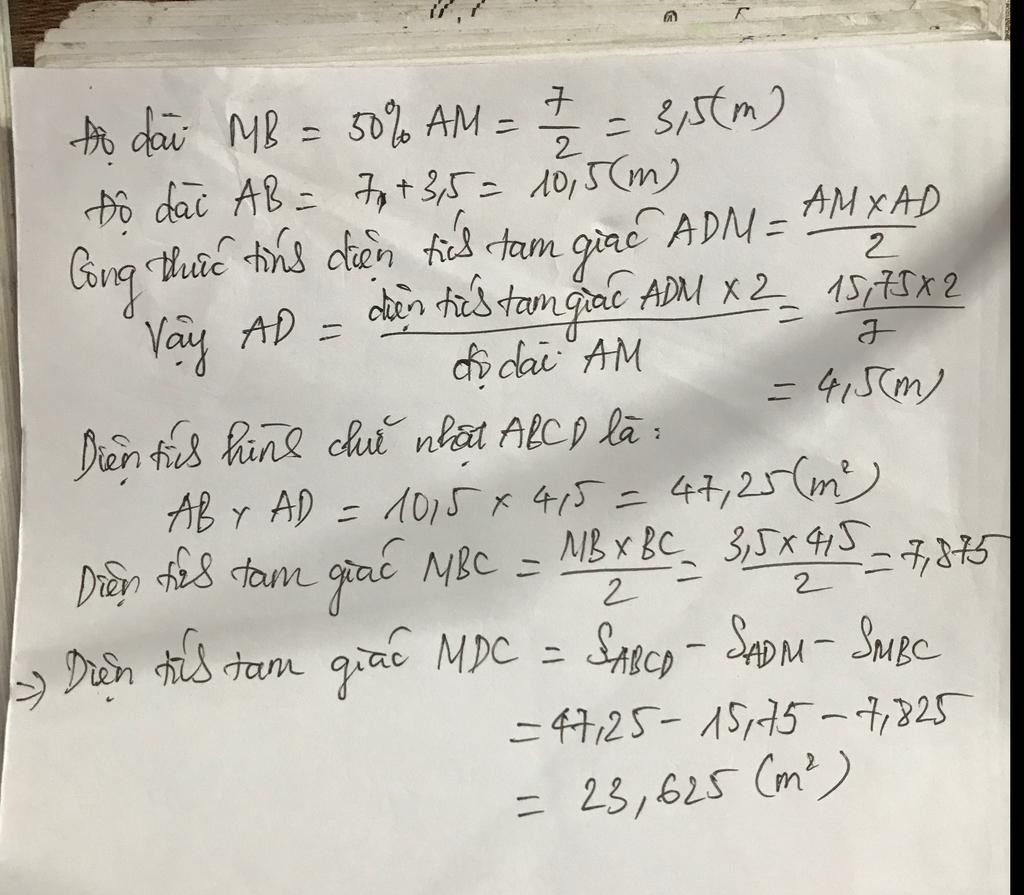 Độ dài MB = 50% AM = 7/2 = 3,5(m)
Độ dài AB = 7 + 3,5 = 10,5(m)
Công thức tính diện tích tam giác ADM = AM x AD / 2
Vậy AD = diện tích tam giác ADM x 2 / độ dài AM = 15,75 x 2 / 7
= 4,5(m)
Diện tích hình chữ nhật ABCD là:
AB x AD = 10,5 x 4,5 = 47,25(m²)
Diện tích tam giác MBC = MB x BC / 2 = 3,5 x 4,5 / 2 = 7,875
=> Diện tích tam giác MDC = SABCD - SADM - SMBC
= 47,25 - 15,75 - 7,825
= 23,625 (m²)